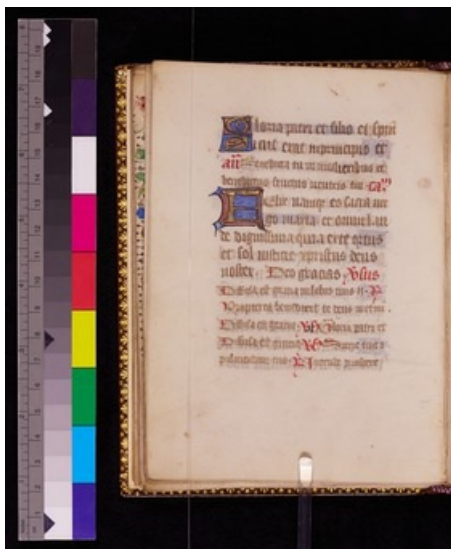 Gloria patri et filio et spiri
Sicut erat in principio et
añ. Benedicta tu in mulieribus et
benedictus fructus ventris tui. ca.
Felix namque es sacra vir
go maria et omni lau
de dignissima quia ex te ortus
est sol iusticie xpristus deus
noster. Deo gracias. Vsus
Diffusa est gracia in labiis tuis
Propterea benedixit te deus in etern
Diffusa est gracia Gloria patri et
Diffusa est gracia Specie tua et
pulcritudine tua. Intende prospere